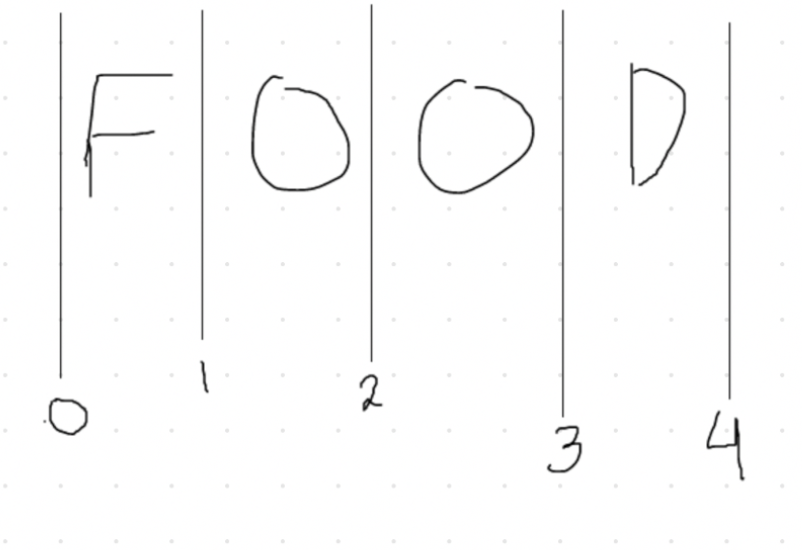 FOOD
0 1 2 3 4